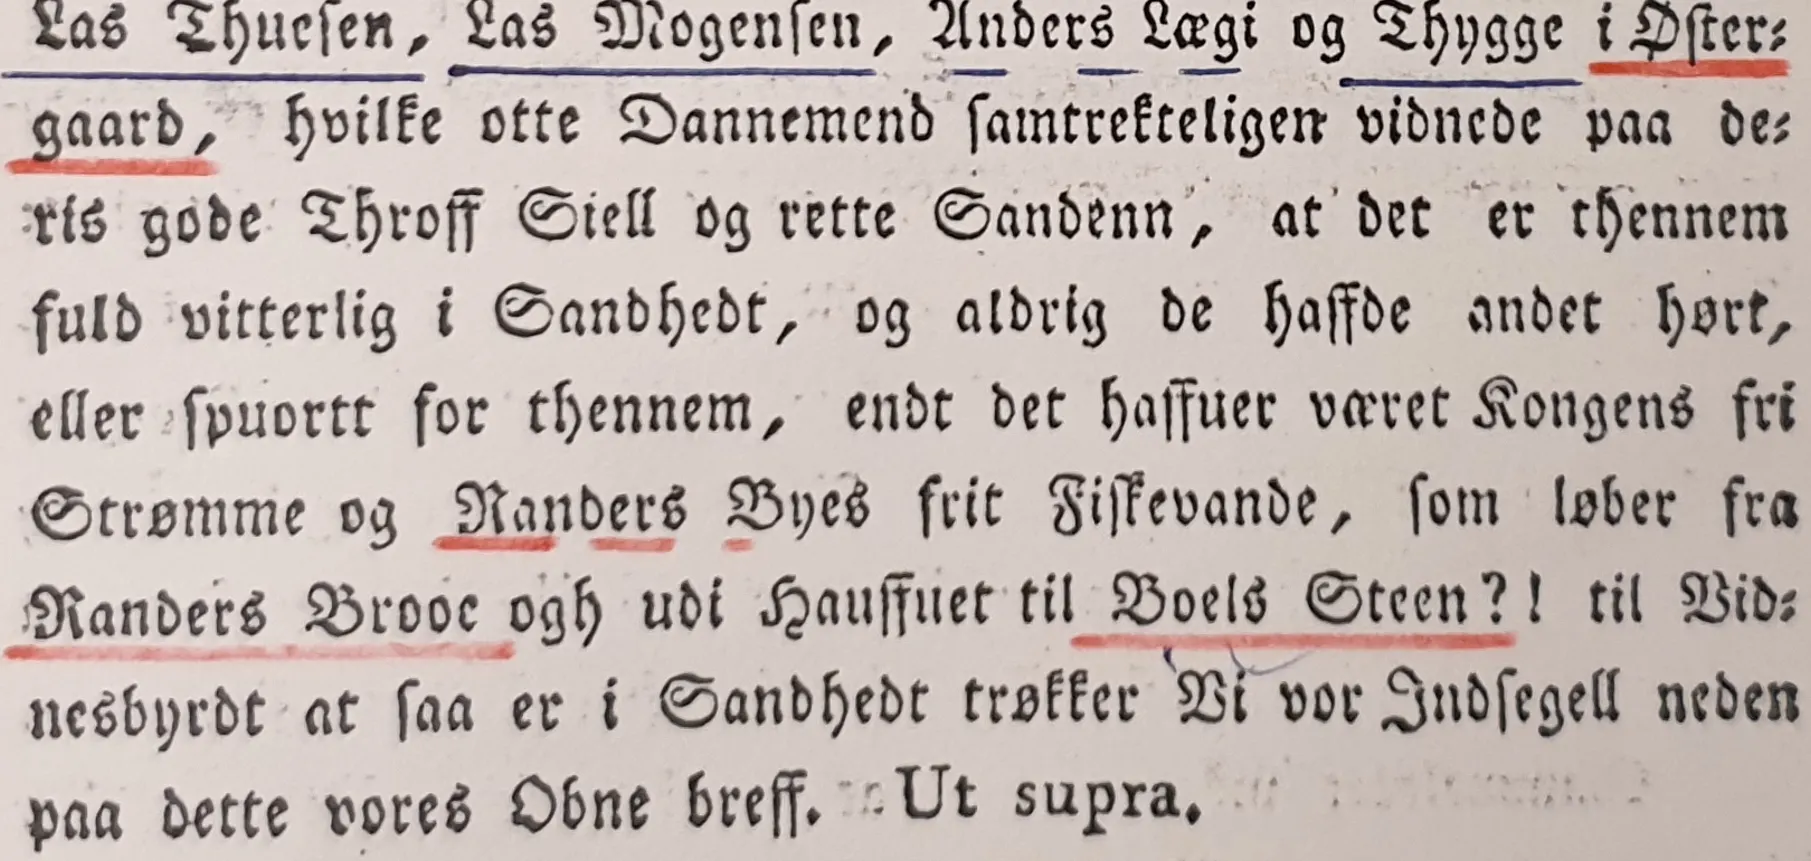 Las Thuesen, Las Mogensen, Anders Lægi og Thygge i Øster-
gaard, hvilke otte Dannemend samtrekteligen vidnede paa de-
ris gode Throff Siell og rette Sandenn, at det er thennem
fuld vitterlig i Sandhedt, og aldrig de haffde andet hørt,
eller spuortt for thennem, endt det haffuer været Kongens fri
Strømme og Randers Byes frit Fiskevande, som løber fra
Randers Brooe ogh udi Hauffuet til Boels Steen?! til Vid-
nesbyrdt at saa er i Sandhedt trøkker Vi vor Indsegell neden
paa dette vores Obne breff. Ut supra.